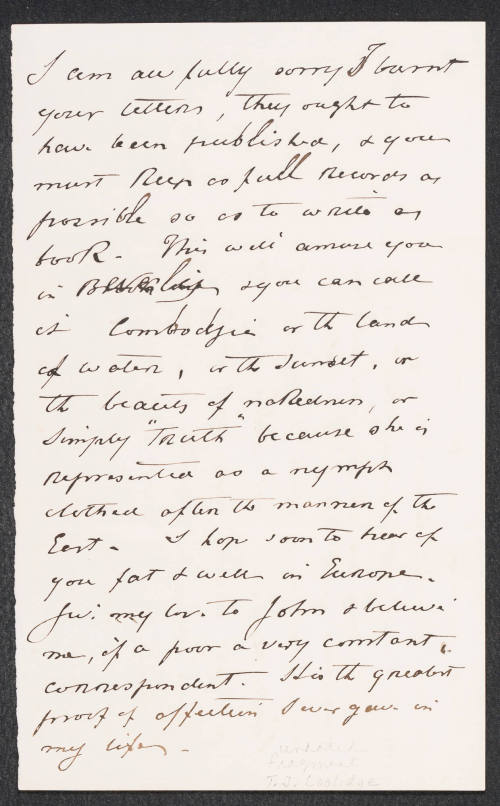 I am awfully sorry I burnt
your letters, they ought to
have been published, & you
must keep as full records as
possible so as to write a
book. This will amuse you
in & you can call
it Cambodgia or the land
of water, or the sunset, or
the beauty of nakedness, or
simply "Truth" because she is
represented as a nymph
clothed after the manner of the
East. I hope soon to hear of
you fat & well in Europe.
Give my love to John & believe
me, if a poor a very constant
correspondent. It is the greatest
proof of affection I ever gave in
my life.
undated
fragment
T. J. Coolidge